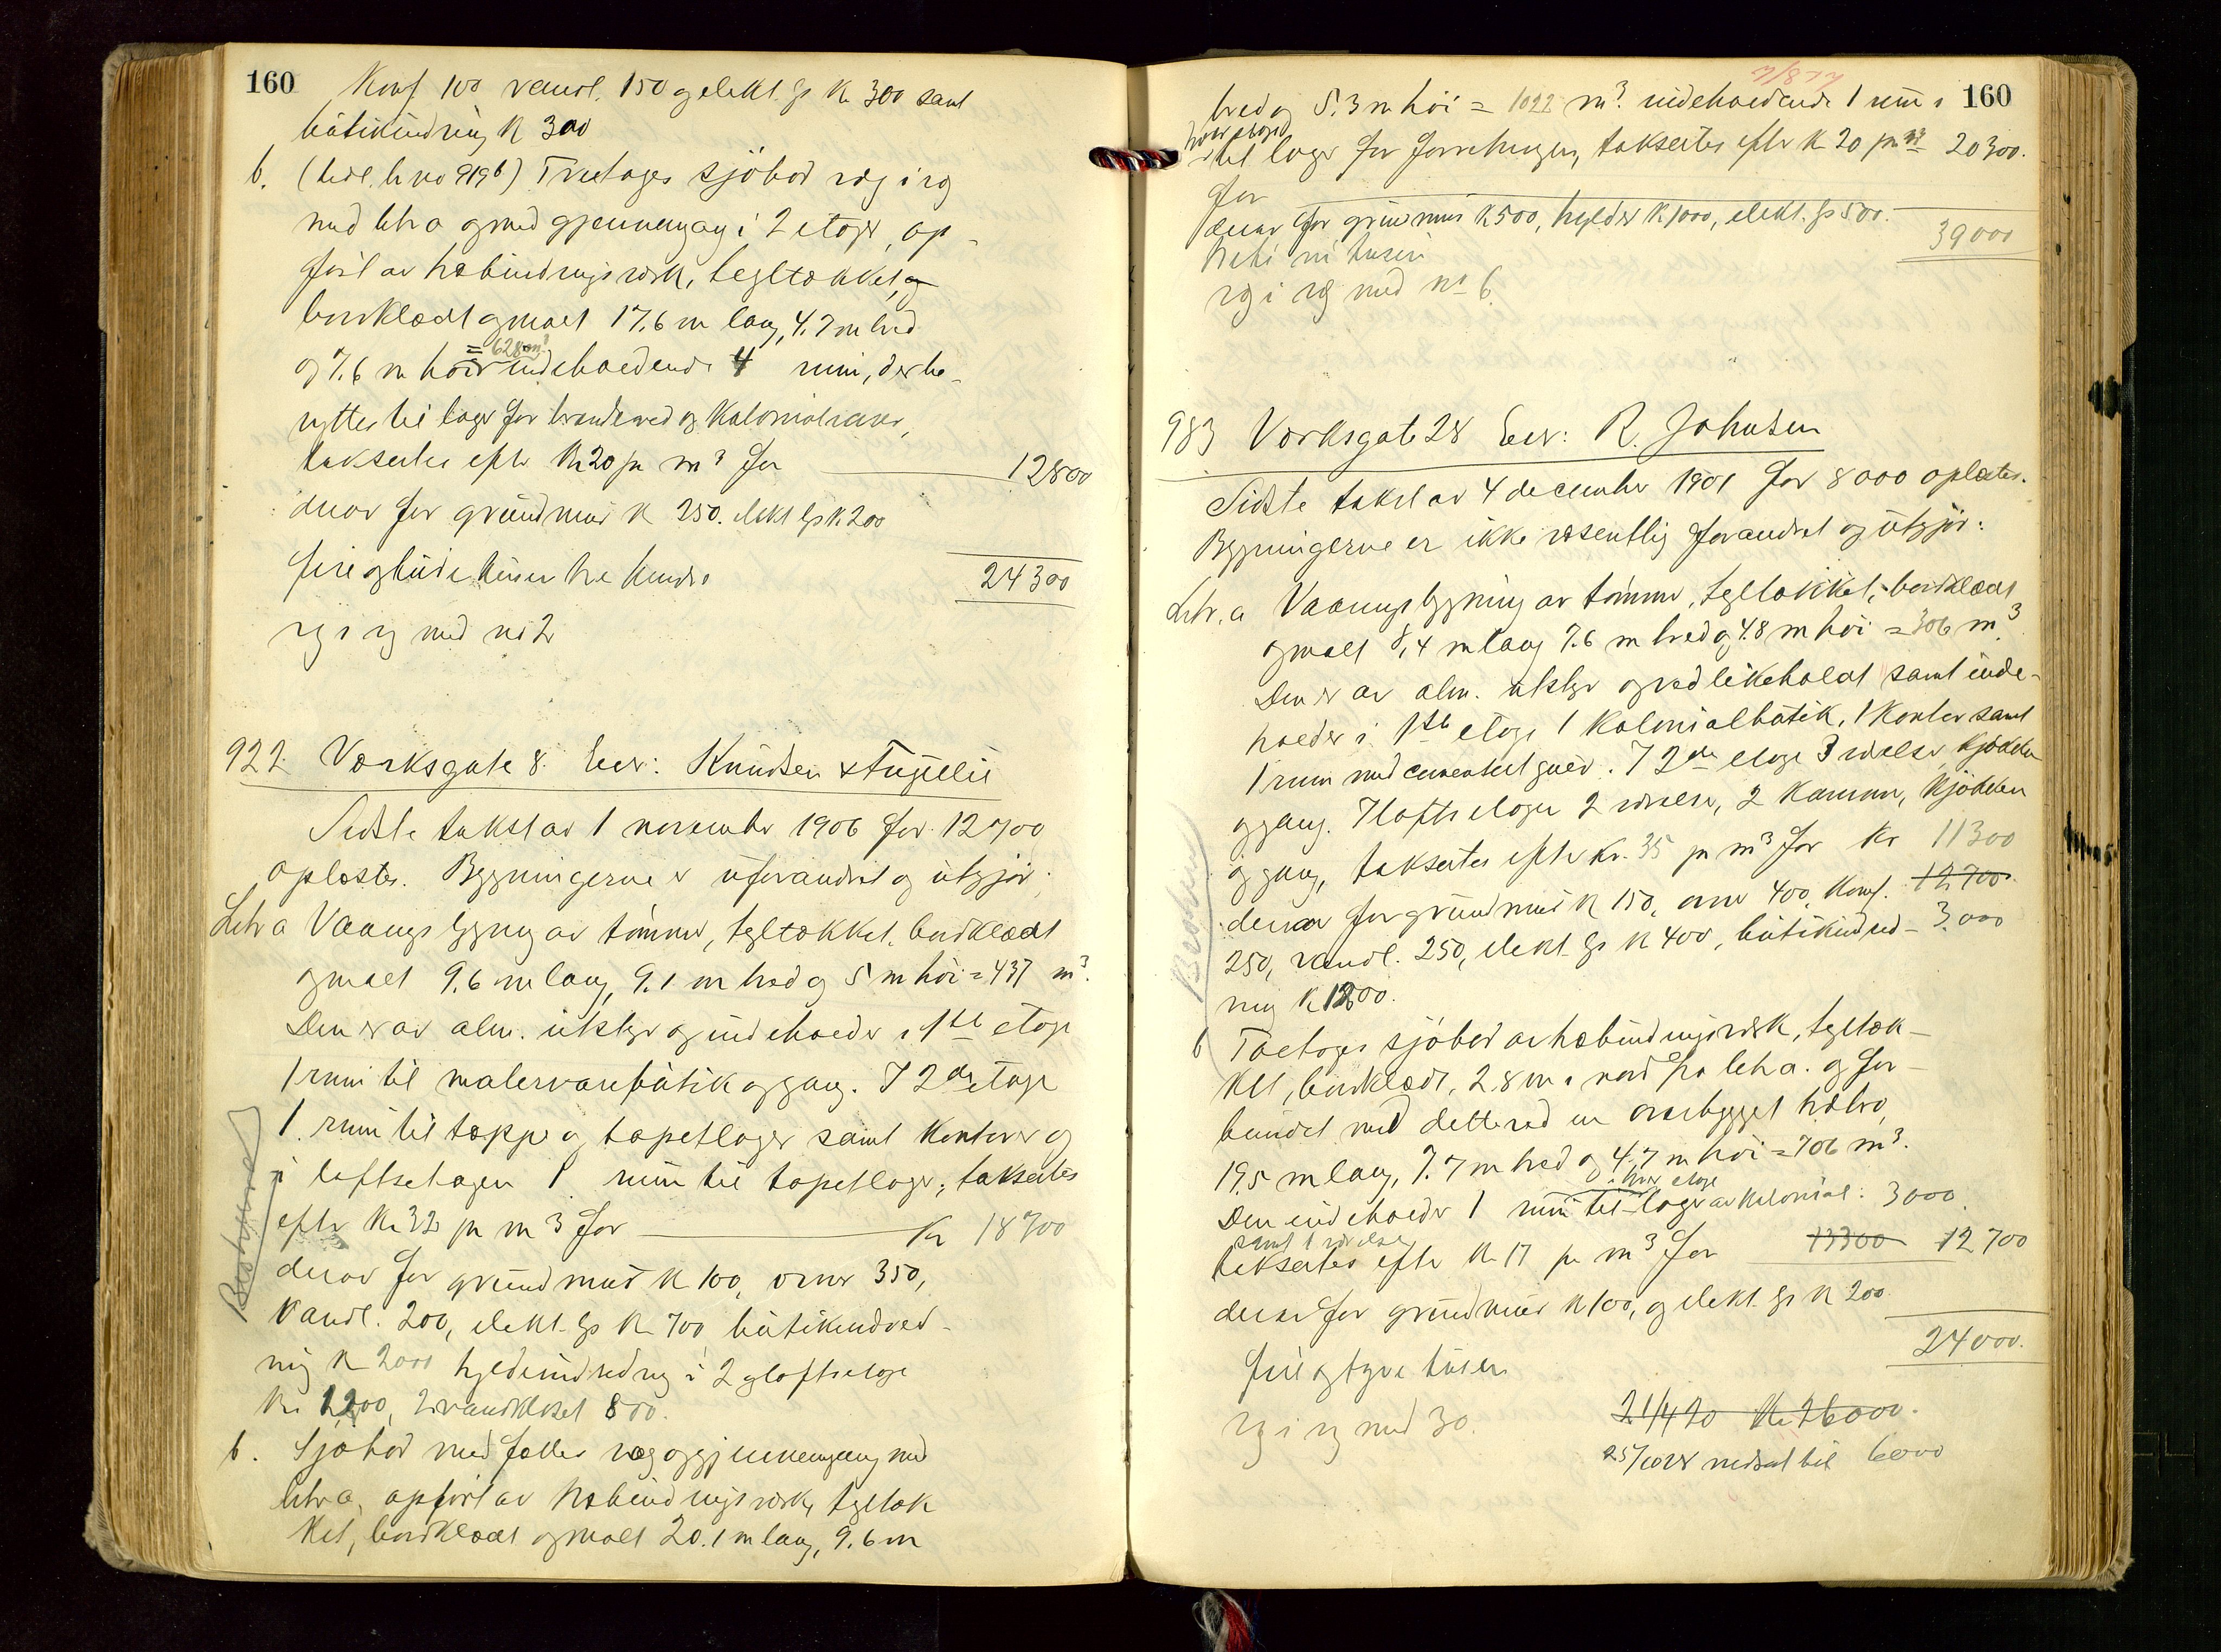 160
Komf. 100 vandl. 150 og elekt. lys K 300 samt
butikindredning K 300
b. (tidl. br no 919b) Treetages sjöbod væg i væg
med litr a og med gjennemgang i 2 etager, op-
ført av halvbindingsværk, tegltækket, og
bordklædt og malt 17.6 m lang, 4.7 m bred
= 628 m³
og 7.6 m høi indeholdende 4 rum, der be-
nyttes til lager for brændeved og Kolonialvarer,
takseres efter Kr 20 pr m³ for 12800
derav for grundmur K 250. elekt. lys K 200
fire og tyve tusen tre hundre 24300
væg i væg med no 2
922. Værksgate 8. Eier: Knudsen &
Sidste takst av 1 november 1906 for 12700
oplæstes. Bygningerne er uforandret og utgjør:
Litr a Vaaningsbygning av tømmer, tegltækket, bordklædt
og malt 9.6 m lang, 9.1 m bred og 5 m høi = 437 m³.
Den er av alm. utstyr og indeholder i 1ste etage
1 rum til malervarebutik og gang. I 2den etage
1 rum til tæppe og tapetlager samt kontorer og
i loftsetagen 1 rum til tapetlager, takseres
efter Kr 32 pr m3 for Kr 18700
derav for grundmur K 100, ovner 350,
Vandl. 200, elekt. lys K 700 butikindred-
ning K 2000 hyldeindredning i 2 og loftsetage
Kr 1200, 2 vandkloset 800.
b. Sjøbod med fælles væg og gjennemgang med
litr a, opført av halvbindingsværk, tegltæk
ket, bordklædt og malt 20.1 m lang, 9.6 m
160
bred og 5.3 m høi = 1022 m³. indeholdende 1 rum i
hver etage
til lager for forretningen, takseres efter K 20 pr m³ 20300.
for
derav for grundmur K 500, hylder K 1000, elekt. lys 500.
39000
Tretti ni tusen
væg i væg med no 6.
983 Værksgate 28 Eier: R. Johnsen
Sidste takst av 4 december 1901 for 8000 oplæstes.
Bygningerne er ikke væsentlig forandret og utgjør:
Litr. a Vaaningsbygning av tømmer, tegltækket, bordklædt
og malt 8.4 m lang 7.6 m bred og 4.8 m høi = 306 m³.
Den er av alm. utstyr og vedlikeholdt samt inde-
holder i 1ste etage 1 Kolonialbutik, 1 Kontor samt
1 rum med cementert gulv. I 2den etage 3 værelser, kjøkken
og gang. I loftsetagen 2 værelser, 2 kammer, kjøkken
og gang, takseres efter kr. 35 pr m³ for Kr 11300
12700
derav for grundmur K 150, ovner 400, Komf.
250, vandl. 250, elekt. lys K 400, butikindred- 3000
ning K 1200.
b Toetages sjøbod av halvbindingsværk, tegltæk-
ket, bordklædt, 2.8 m i nord fra litr a. og for-
bundet med dette ved en overbygget trebro,
19.5 m lang, 7.7 m bred og 4.7 m høi = 706 m³.
i hver etage
Den indeholder 1 rum til lager av Kolonial: 3000.
samt 1 værelse
takseres efter K 17 pr m³ for 13300 12700
derav for grundmur K 100, og elekt. lys K 200
24000.
fire og tyve tusen
væg i væg med 30.
21/4 20 Kr 26000.
nedsat til 6000